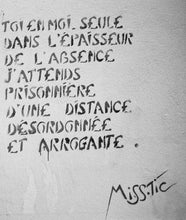 TOI EN MOI, SEULE
DANS L'ÉPAISSEUR
DE L'ABSENCE
J'ATTENDS
PRISONNIÈRE
D'UNE DISTANCE
DÉSORDONNÉE
ET ARROGANTE.
MISS.TIC